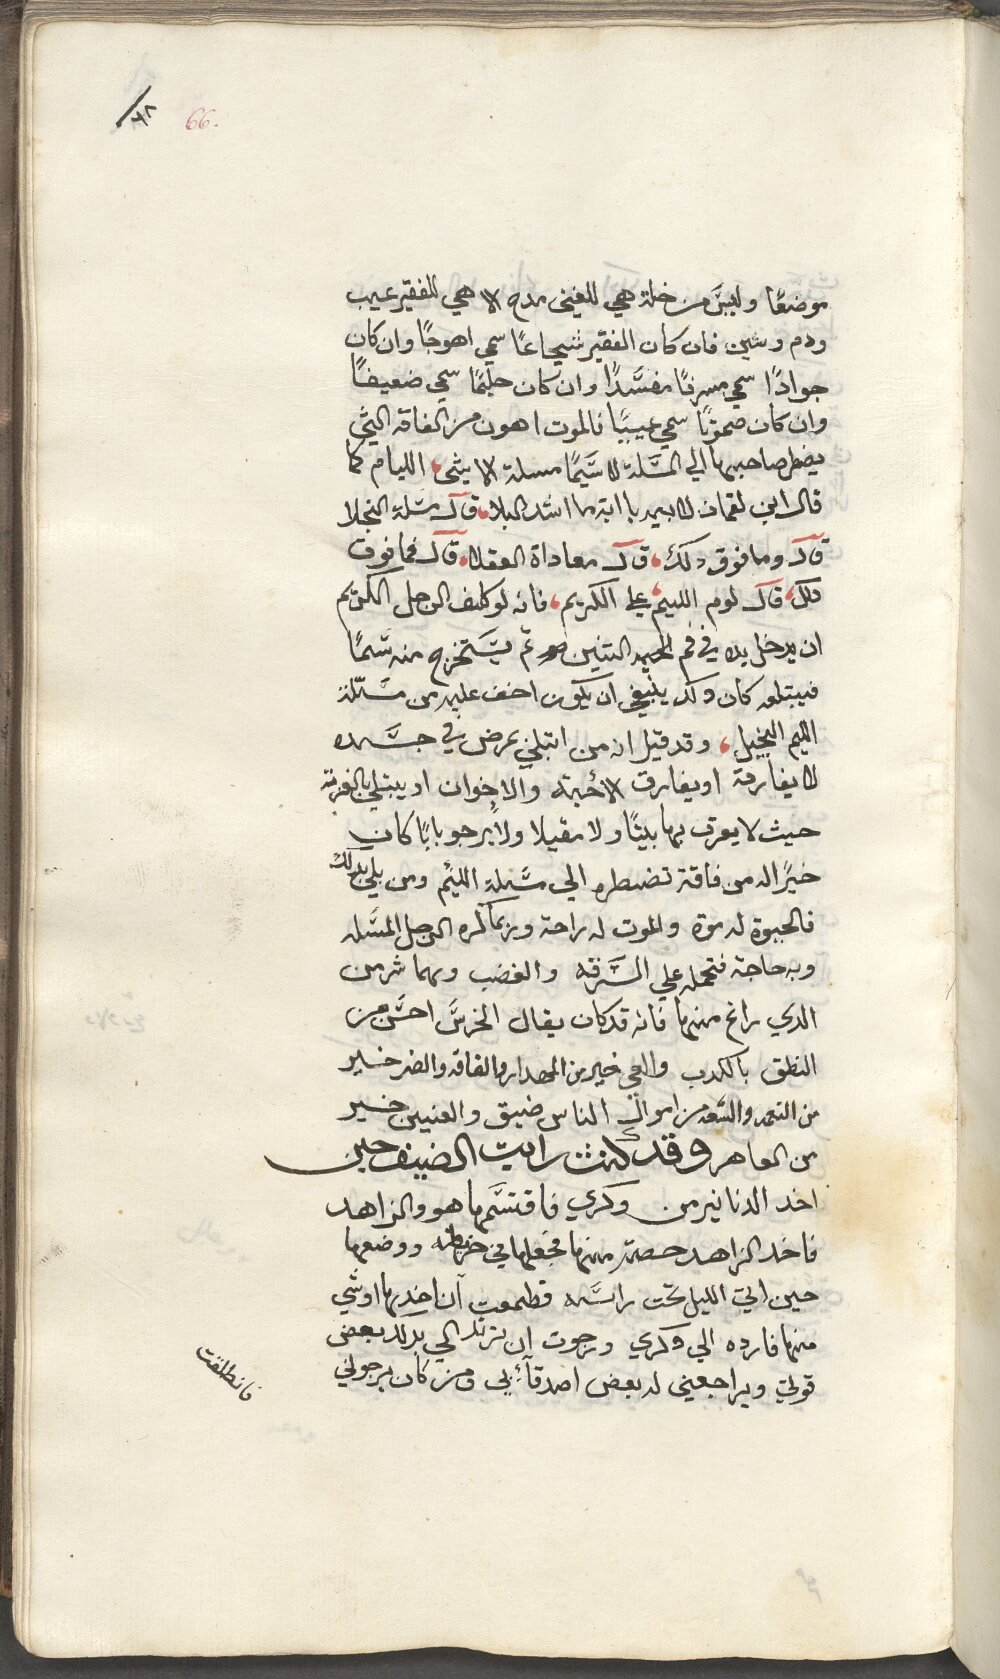 66.
موضعًا وليس من خلة هي للغني مدح الا هي للفقير عيب
ودم وشين فان كان الفقير شجاعًا سمي اهوجًا وان كان
جوادًا سمي مسرفًا مفسّدًا وان كان حليمًا سمي ضعيفًا
وان كان صموتًا سمي عيبيًا فالموت اهون من الفاقه التي
يضطر صاحبها الي المسَّلة لا سَّيمًا مسلة الاشيى الليام كما
قال ابن لقمان لابيه يا ابة ما اشد البلا قال مسَّلة البخلا
قال وما فوق دلك قال معاداة العقلا قال فما فوق
دلك قال لوم اللييم علي الكريم فانه لو كلف الرجل الكريم
ان يدخل يده في فم الحيه التنين ثم يسَّتخرج منه سَّمًا
فيبتلعه كان دلك ينبغي ان يكون اخف عليه من مسَّئلة
الليم البخيل وقد قيل ان من ابتلي بمرض في جسَّده
لا يفارقه او بفارق الأحبة والاخوان او يبتلي بالغربة
حيث لا يعرف بها بيتًا ولا مقيلا ولا يرجو بابًا كان
خيرًا له من فاقة تضطره الي مسَّيلة اللئيم ومن بلي بدلك
فالحيوة له موة والموت له راحة وربما كره الرجل المسَّله
وبه حاجة فتحمله علي السَّرقه والغضب وهما شر من
الدي راغ منهما فانه قد كان يقال الخرسَّ احسَّن من
النطق بالكدب والعي خير من المهدار والفاقه والضر خير
من النعمه والسَّعه من اموال الناس ضيق والعنيين خير
من العاهر وقد كنت رايت الضيف حين
اخد الدنانير من وكري فاقتسَّمها هو والزاهد
فاخد الزاهد حصته منها فجعلها في خريطته ووضعها
حين اتي الليل تحت راسَّه فطمعت أن اخدها او شي
منها فارده الي وكري ورجوت ان ترتد الي بدلك بعض
قوتي ويراجعني له بعض اصدقاّئي ومن كان يرجوني
فانطلقت